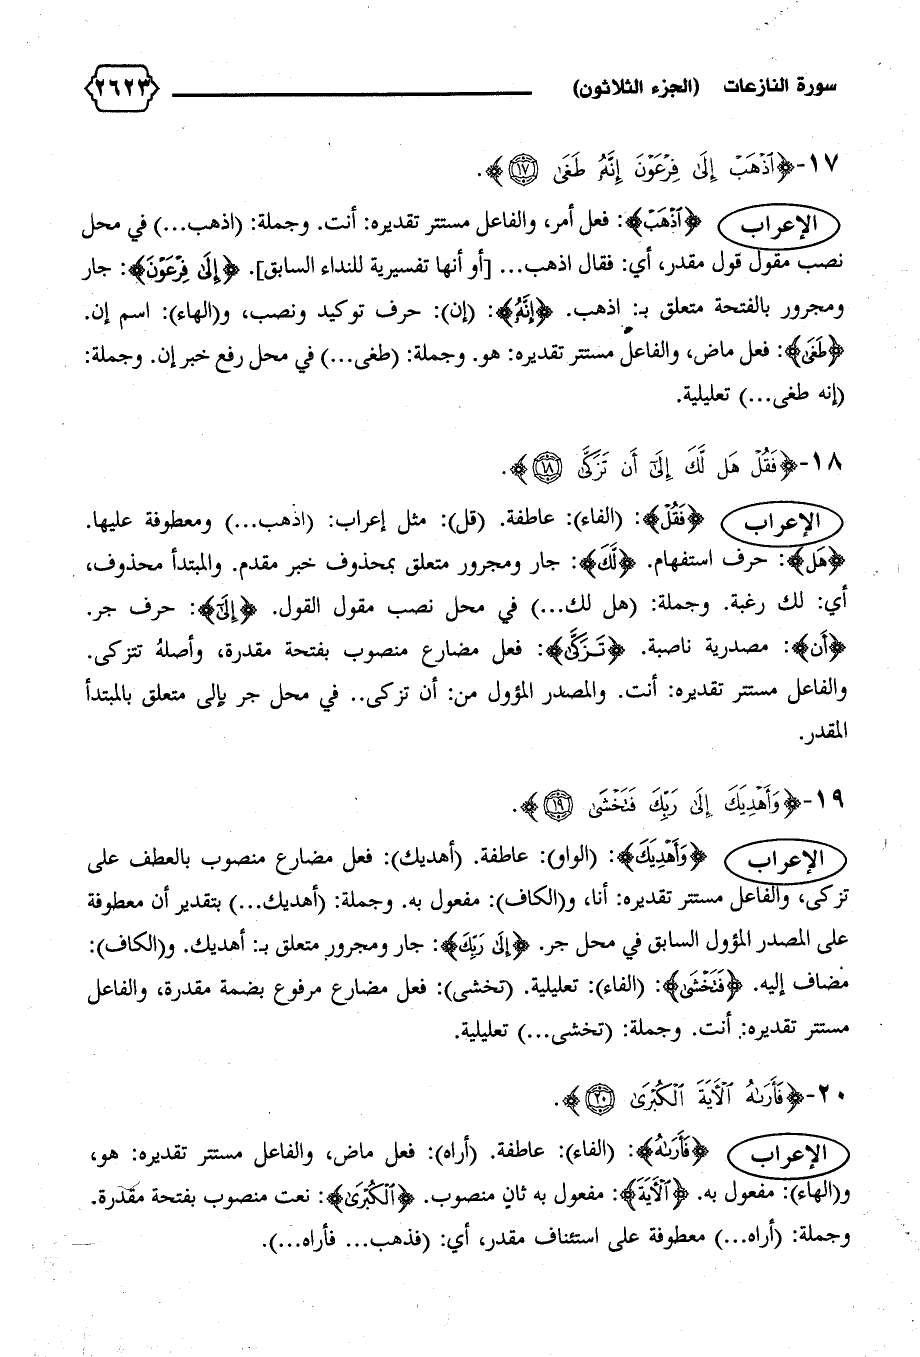 سورة النازعات (الجزء الثلاثون) ٢٦٢٣
١٧-﴿ٱذْهَبْ إِلَىٰ فِرْعَوْنَ إِنَّهُۥ طَغَىٰ ١٧﴾.
الإعراب ﴿ٱذْهَبْ﴾: فعل أمر، والفاعل مستتر تقديره: أنت. وجملة: (اذهب...) في محل
نصب مقول قول مقدر، أي: فقال اذهب... [أو أنها تفسيرية للنداء السابق]. ﴿إِلَىٰ فِرْعَوْنَ﴾: جار
ومجرور بالفتحة متعلق بـ: اذهب. ﴿إِنَّهُۥ﴾: (إن): حرف توكيد ونصب، و(الهاء): اسم إن.
﴿طَغَىٰ﴾: فعل ماض، والفاعل مستتر تقديره: هو. وجملة: (طغى...) في محل رفع خبر إن. وجملة:
(إنه طغى...) تعليلية.
١٨-﴿فَقُلْ هَل لَّكَ إِلَىٰٓ أَن تَزَكَّىٰ ١٨﴾.
الإعراب ﴿فَقُلْ﴾: (الفاء): عاطفة. (قل): مثل إعراب: (اذهب...) ومعطوفة عليها.
﴿هَل﴾: حرف استفهام. ﴿لَّكَ﴾: جار ومجرور متعلق بمحذوف خبر مقدم. والمبتدأ محذوف،
أي: لك رغبة. وجملة: (هل لك...) في محل نصب مقول القول. ﴿إِلَىٰٓ﴾: حرف جر.
﴿أَن﴾: مصدرية ناصبة. ﴿تَزَكَّىٰ﴾: فعل مضارع منصوب بفتحة مقدرة، وأصلهُ تتزكى.
والفاعل مستتر تقديره: أنت. والمصدر المؤول من: أن تزكى.. في محل جر بإلى متعلق بالمبتدأ
المقدر.
١٩-﴿وَأَهْدِيَكَ إِلَىٰ رَبِّكَ فَتَخْشَىٰ ١٩﴾.
الإعراب ﴿وَأَهْدِيَكَ﴾: (الواو): عاطفة. (أهديك): فعل مضارع منصوب بالعطف على
تزكى، والفاعل مستتر تقديره: أنا، و(الكاف): مفعول به. وجملة: (أهديك...) بتقدير أن معطوفة
على المصدر المؤول السابق في محل جر. ﴿إِلَىٰ رَبِّكَ﴾: جار ومجرور متعلق بـ: أهديك. و(الكاف):
مضاف إليه. ﴿فَتَخْشَىٰ﴾: (الفاء): تعليلية. (تخشى): فعل مضارع مرفوع بضمة مقدرة، والفاعل
مستتر تقديره: أنت. وجملة: (تخشى...) تعليلية.
٢٠-﴿فَأَرَىٰهُ ٱلْأَيَةَ ٱلْكُبْرَىٰ ٢٠﴾.
الإعراب ﴿فَأَرَىٰهُ﴾: (الفاء): عاطفة. (أراه): فعل ماض، والفاعل مستتر تقديره: هو،
و(الهاء): مفعول به. ﴿ٱلْأَيَةَ﴾: مفعول به ثانٍ منصوب. ﴿ٱلْكُبْرَىٰ﴾: نعت منصوب بفتحة مقدرة.
وجملة: (أراه...) معطوفة على استئناف مقدر، أي: (فذهب... فأراه...).